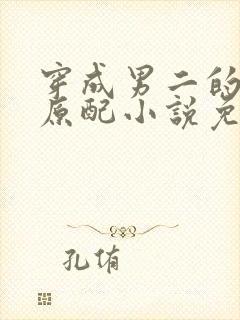 穿成男二的
原配小説免
孔侑